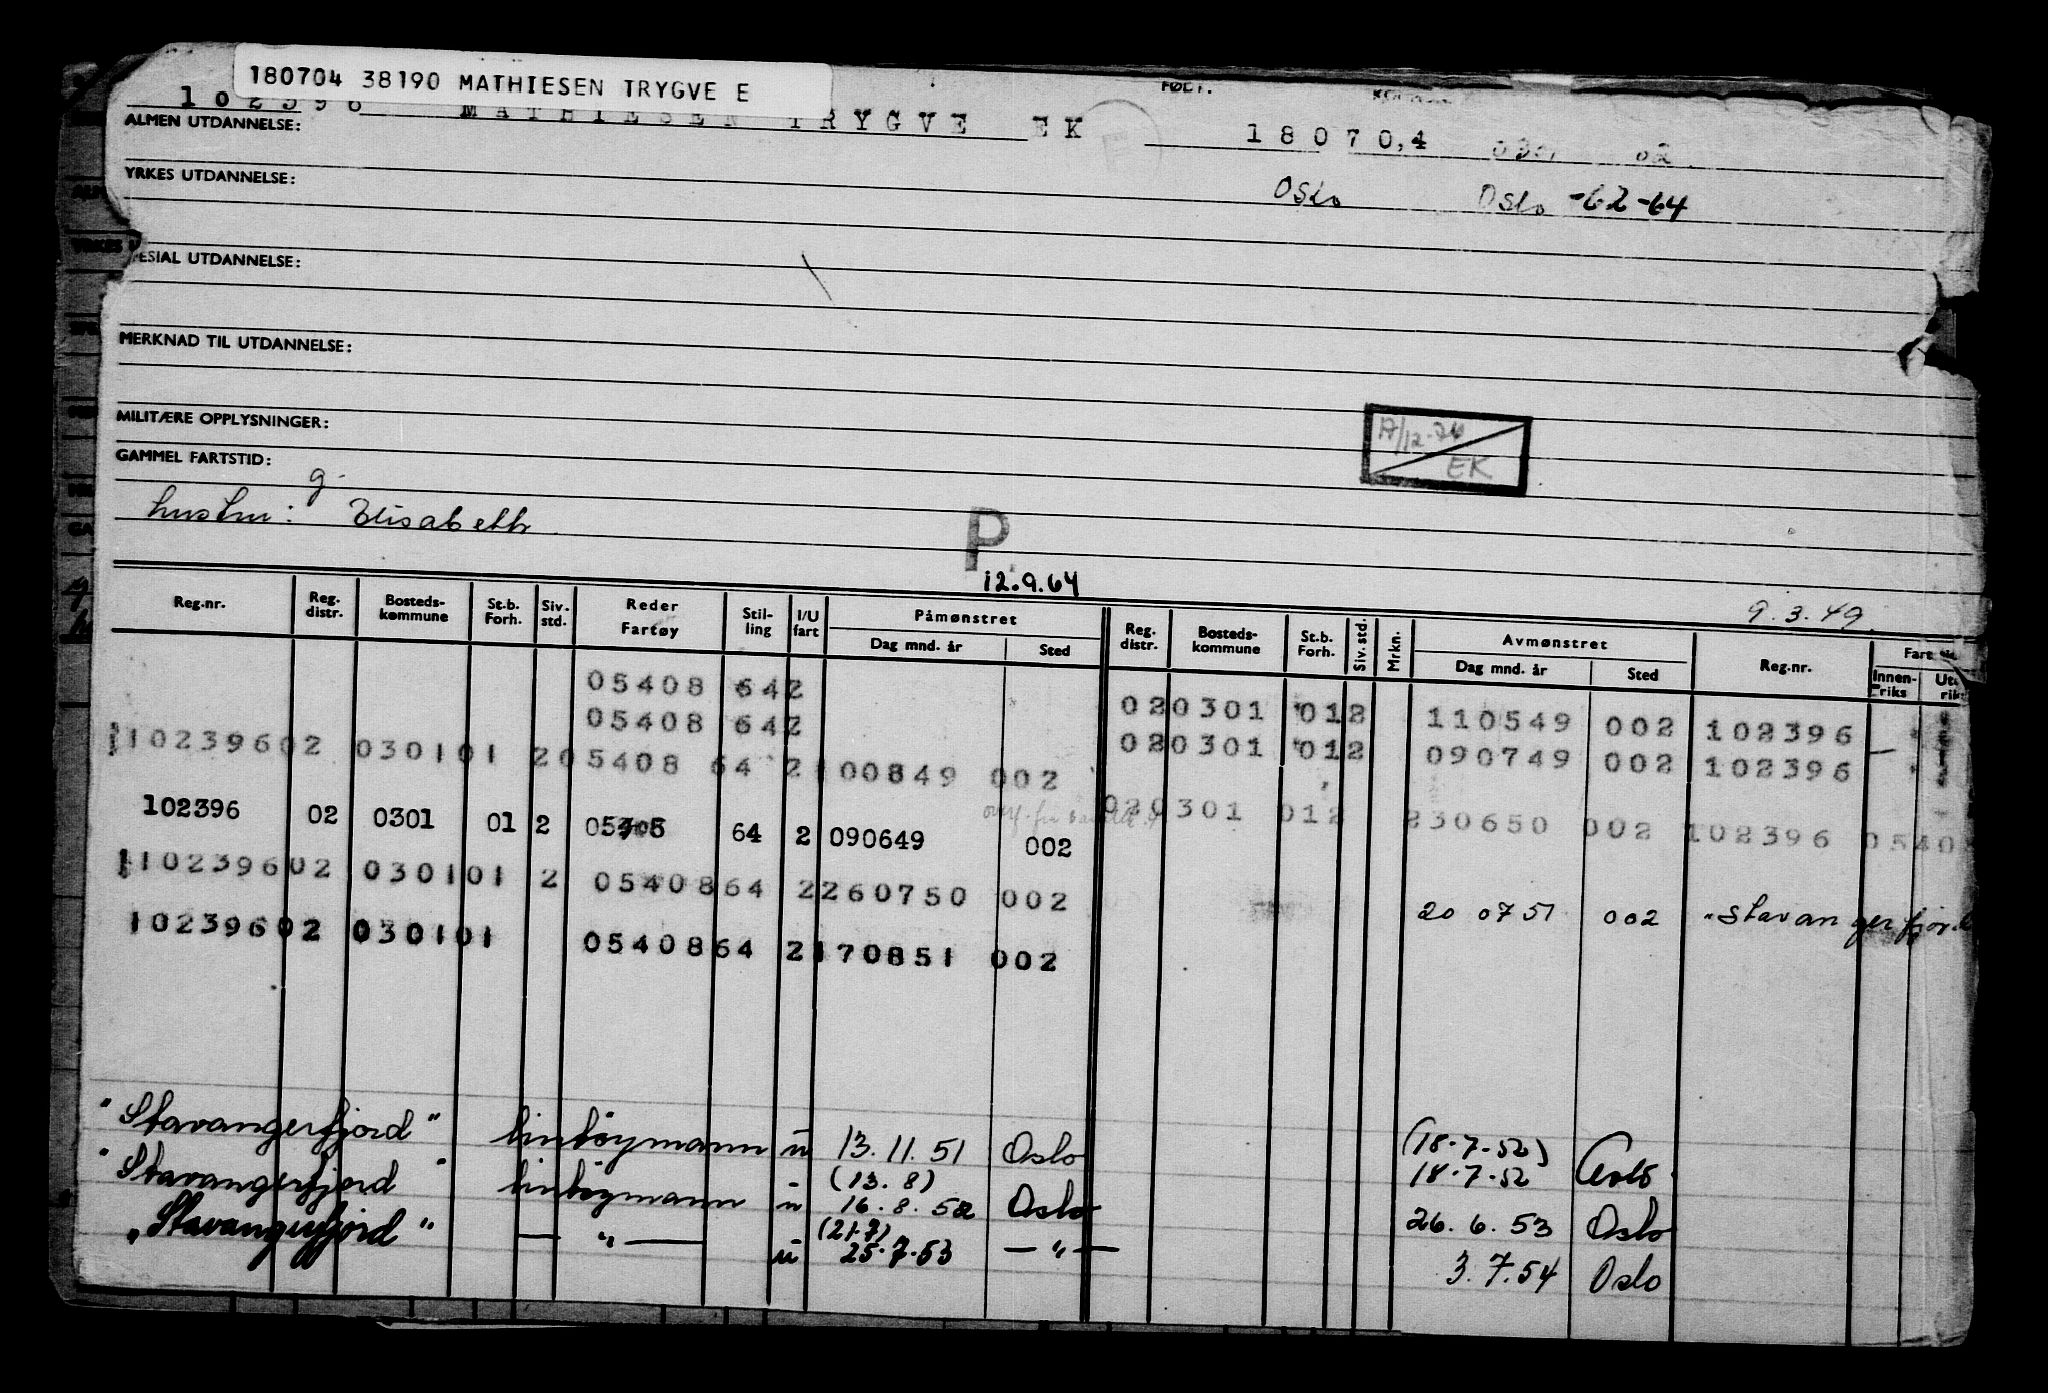 180704 38190 MATHIESEN TRYGVE E
102396 MATHIESEN TRYGVE EK FØDT: 180704 0301 02
ALMEN UTDANNELSE:
YRKES UTDANNELSE: Oslo Oslo -62-64
ESIAL UTDANNELSE:
MERKNAD TIL UTDANNELSE:
MILITÆRE OPPLYSNINGER:
12-
EK
GAMMEL FARTSTID:
g.
hustru: Elisabeth
P
12.9.64
9.3.49.
Reg.nr. Reg. distr. Bosteds-kommune St.b. Forh. Siv. std. Reder Fartøy Stil-ling I/U fart Påmønstret Dag mnd. år Sted Reg. distr. Bosteds-kommune St.b. Forh. Siv. std. Mrkn. Avmønstret Dag mnd. år Sted Reg.nr. Fart Innen-riks
05408 64 2 02 0301 01 2 110549 002 102396
05408 64 2 02 0301 01 2 090749 002 102396 —
102396 02 0301 01 2 05408 64 2 100849 002 02 0301 01 2 230650 002 102396 0540
102396 02 0301 01 2 64 2 090649 002
102396 02 0301 01 2 05408 64 2 260750 002 20 07 51 002 "Stavangerfjord
102396 02 0301 01 05408 64 2 170851 002
"Stavangerfjord" u 13.11.51 Oslo (18.7.52)
18.7.52 Oslo
"Stavangerfjord" u (13.8)
16.8.52 Oslo 26.6.53 Oslo
"Stavangerfjord" — " — u (21.7)
25.7.53 — " — 3.7.54 Oslo